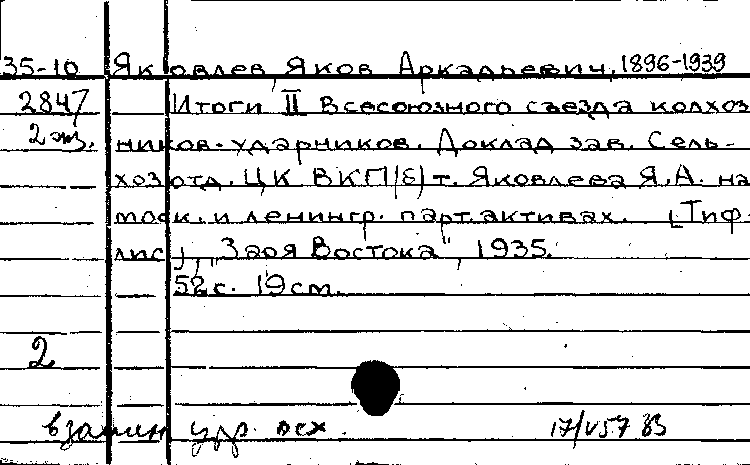 35-10 Яковлев, Яков Аркадьевич, 1896-1939
2847 Итоги II Всесоюзного съезда колхоз
2 экз. ников-ударников. Доклад зав. Сель-
хозотд. ЦК ВКП(б) т. Яковлева Я.А. на
моск. и ленингр. парт. активах. [Тиф-
лис], "Заря Востока", 1935.
52 с. 19 см.
2
взамен
17/V57